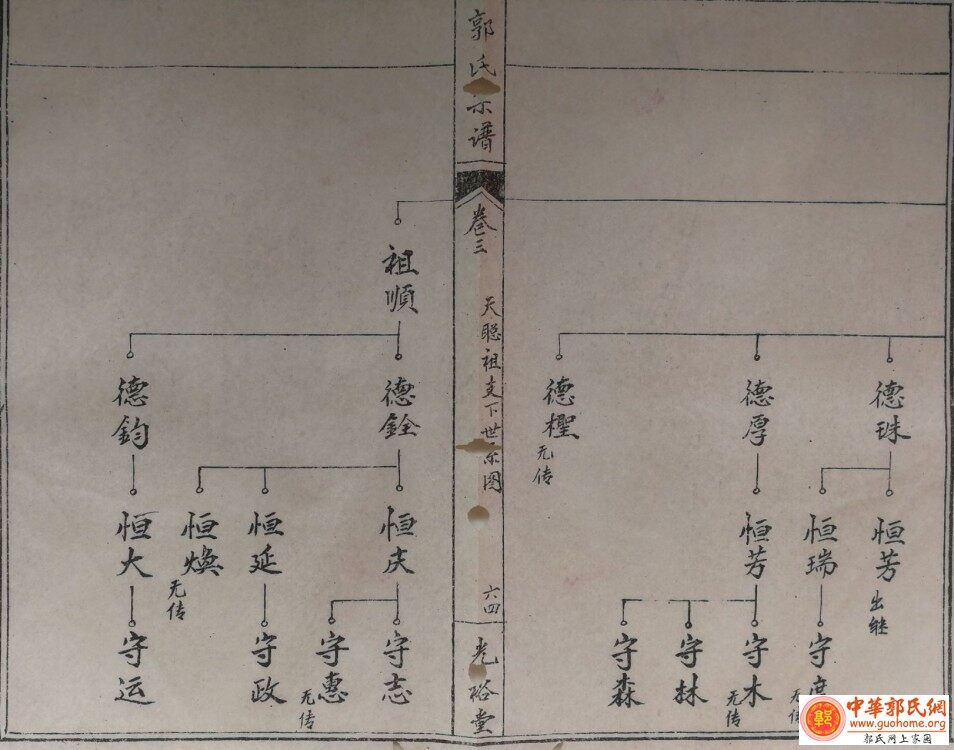 德珠
恒芳
出继
恒瑞
守
无
德厚
恒芳
守木
无传
守林
守森
德樫
无传
郭氏宗谱
卷三
天聪祖支下世系图
六四
光裕堂
祖順
德銓
恒庆
守志
守惠
无传
恒延
守政
恒煥
无传
德鈞
恒大
守运
中華郭氏網
www.guohome.org
郭氏网上家园